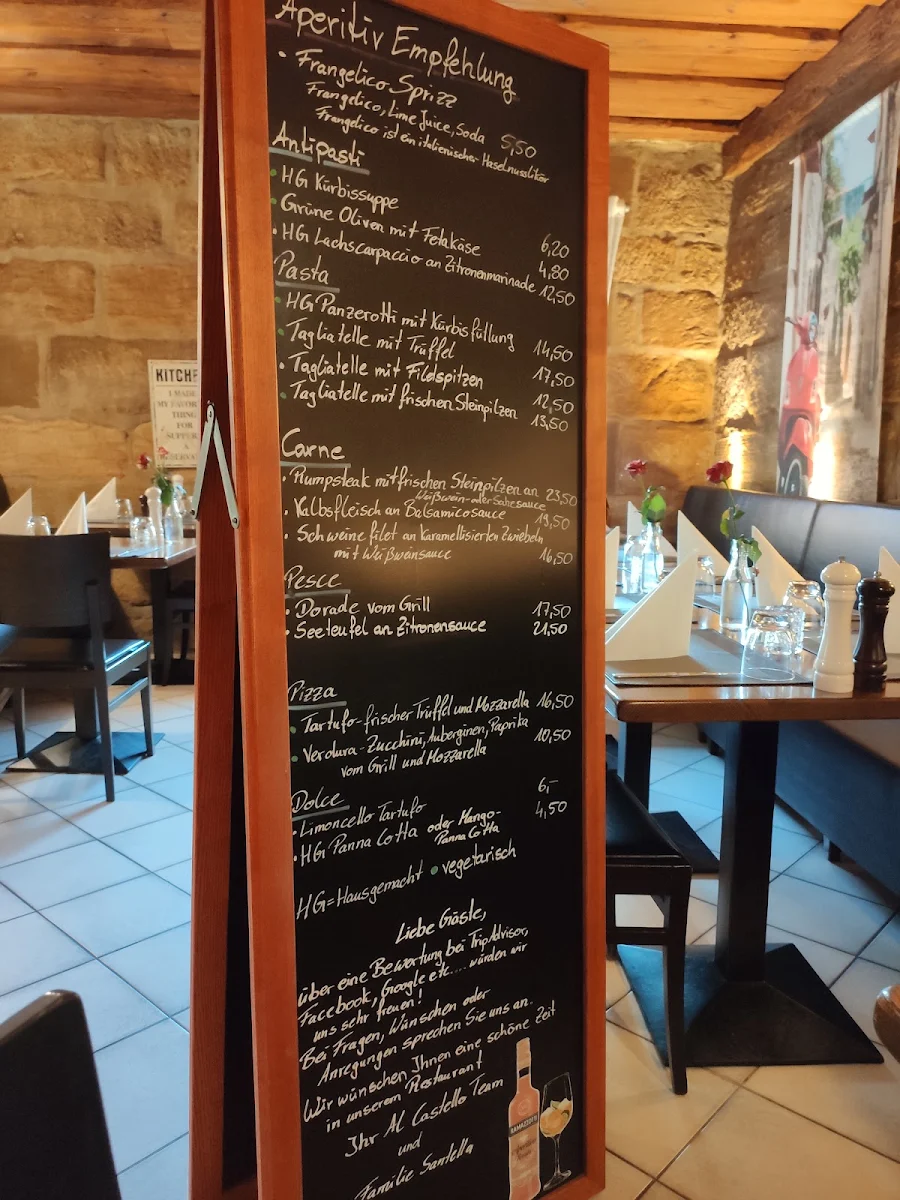 Aperitiv Empfehlung
• Frangelico Sprizz
Frangelico, Lime Juice, Soda 5,50
Frangelico ist ein italienischer Haselnusslikör
Antipasti
• HG Kürbissuppe 6,20
• Grüne Oliven mit Fetakäse 4,80
• HG Lachscarpaccio an Zitronenmarinade 12,50
Pasta
• HG Panzerotti mit Kürbisfüllung 14,50
• Tagliatelle mit Trüffel 17,50
• Tagliatelle mit Filetspitzen 12,50
• Tagliatelle mit frischen Steinpilzen 13,50
Carne
• Rumpsteak mit frischen Steinpilzen an 23,50
Weißwein- oder Sahnesauce
• Kalbsfleisch an Balsamicosauce 19,50
• Schweinefilet an Karamellisierten Zwiebeln
mit Weißweinsauce 16,50
Pesce
• Dorade vom Grill 17,50
• Seeteufel an Zitronensauce 21,50
Pizza
• Tartufo-frischer Trüffel und Mozzarella 16,50
• Verdura-Zucchini, Auberginen, Paprika 10,50
vom Grill und Mozzarella
Dolce
• Limoncello Tartufo 6,-
• HG Panna Cotta oder Mango- 4,50
Panna Cotta
HG=Hausgemacht • vegetarisch
Liebe Gäste,
über eine Bewertung bei TripAdvisor,
Facebook, Google etc.... würden wir
uns sehr freuen!
Bei Fragen, Wünschen oder
Anregungen sprechen Sie uns an.
Wir wünschen Ihnen eine schöne Zeit
in unserem Restaurant
Ihr Al Castello Team
und
Familie Santella
RAMAZZOTTI
KITCHE
I MADE
MY FAVOR
THING
FOR
SUPPER
A